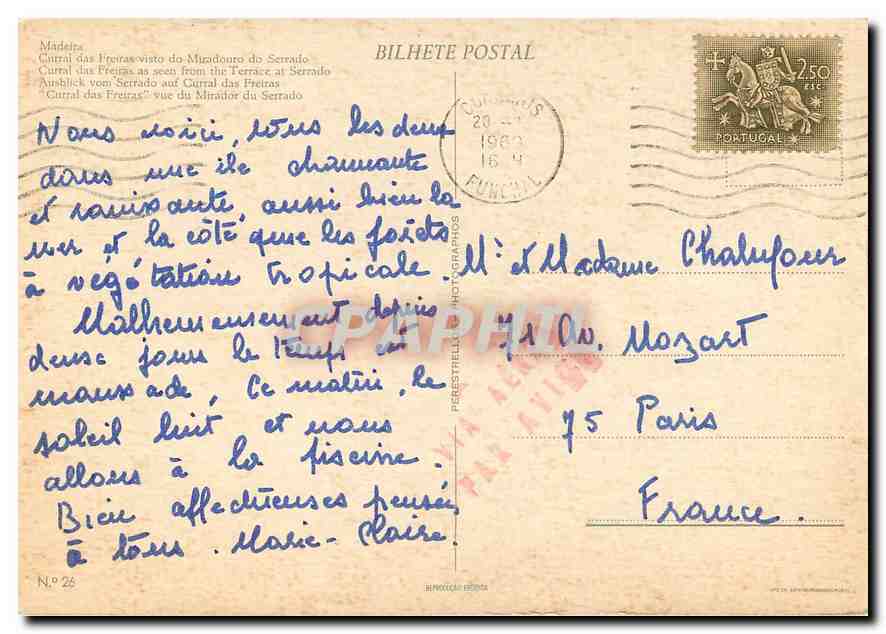 Madeira
Curral das Freiras visto do Miradouro do Serrado
Curral das Freiras as seen from the Terrace at Serrado
Ausblick vom Serrado auf Curral das Freiras
"Curral das Freiras" vue du Mirador du Serrado
BILHETE POSTAL
2$50
ESC.
PORTUGAL
CORREIOS
20
1969
16 H
FUNCHAL
Nous voici, tous les deux
dans une île charmante
et ravissante, aussi bien la
mer et la côte que les forêts
à végétation tropicale.
Malheureusement depuis
deux jours le temps est
maussade. Ce matin, le
soleil luit et nous
allons à la piscine.
Bien affectueuses pensées
à tous. Marie-Claire.
Mr et Madame Chalufour
71 Av. Mozart
75 Paris
France.
VIA AÉREA
PAR AVION
CPAPHIL
PERESTRELLOS PHOTOGRAPHOS
N.º 26
REPRODUÇÃO PROIBIDA